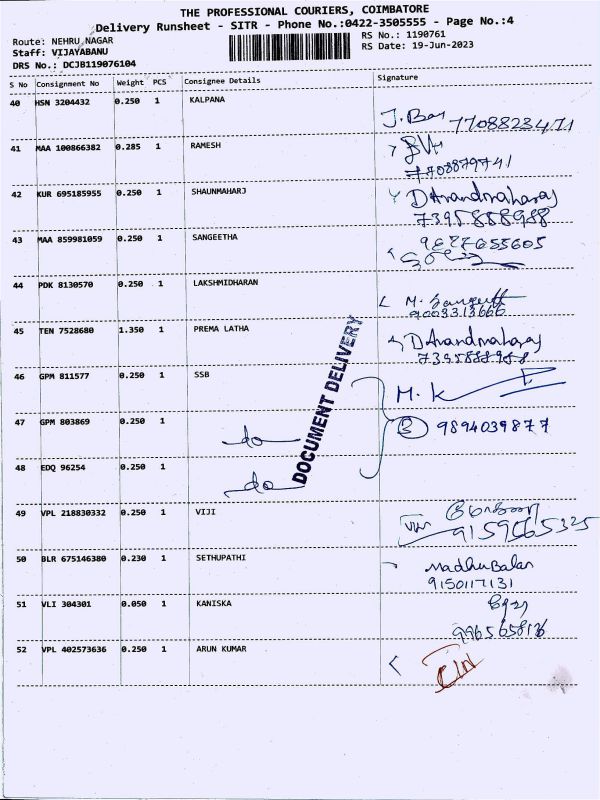 THE PROFESSIONAL COURIERS, COIMBATORE
Delivery Runsheet - SITR - Phone No.:0422-3505555 - Page No.:4
Route: NEHRU NAGAR
Staff: VIJAYABANU
DRS No.: DCJB119076104
RS No.: 1190761
RS Date: 19-Jun-2023
S No Consignment No Weight PCS Consignee Details Signature
40 HSN 3204432 0.250 1 KALPANA
7708823471
41 MAA 100866382 0.285 1 RAMESH
7708879741
42 KUR 695185955 0.250 1 SHAUNMAHARJ
7395888988
43 MAA 859981059 0.250 1 SANGEETHA
44 PDK 8130570 0.250 1 LAKSHMIDHARAN
45 TEN 7528680 1.350 1 PREMA LATHA
7395888988
46 GPM 811577 0.250 1 SSB M.K
47 GPM 803869 0.250 1 do 3 9894039877
48 EDQ 96254 0.250 1 do
DOCUMENT DELIVERY
49 VPL 218830332 0.250 1 VIJI
9159565325
50 BLR 675146380 0.230 1 SETHUPATHI MadhuBalan
9150117131
51 VLI 304301 0.050 1 KANISKA
52 VPL 402573636 0.250 1 ARUN KUMAR